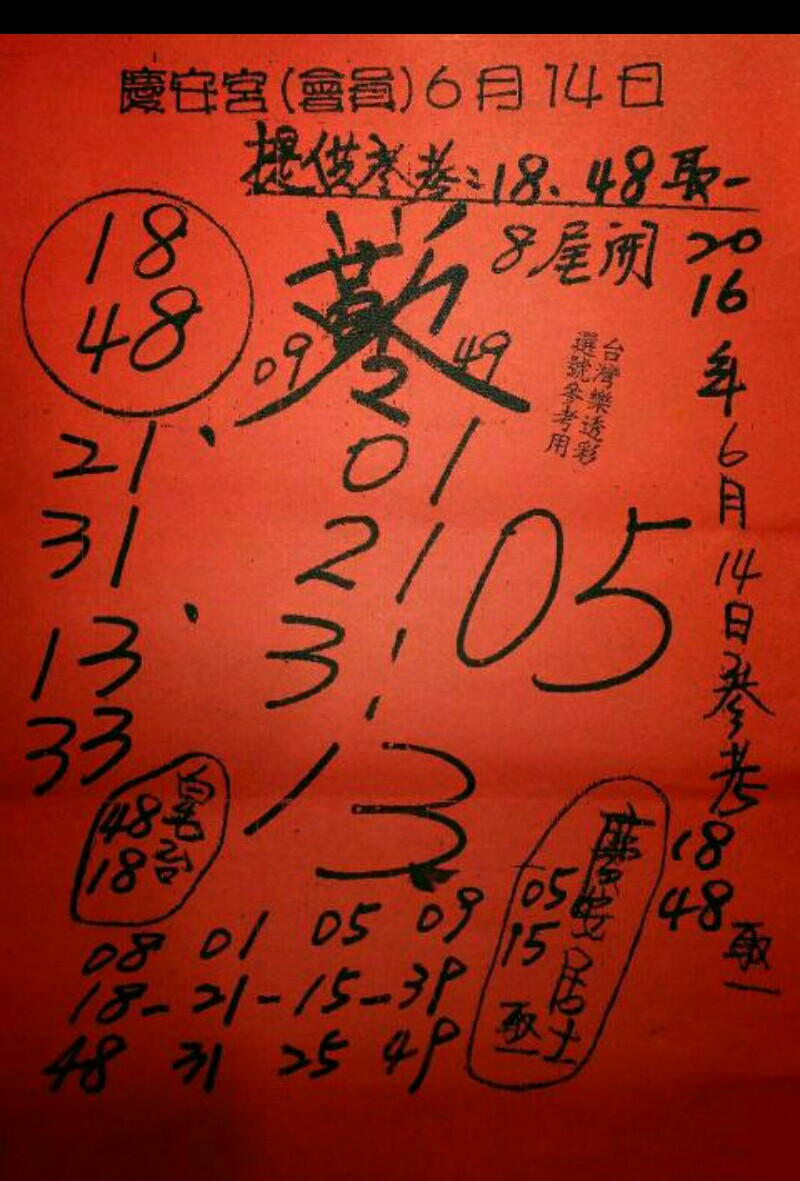 慶安宮(會員)6月14日
提供參考:18、48取一
8尾開
18
48
09
49
台灣樂透彩
選號參考用
2016年6月14日參考
18
48
取一
21
31
13
33
01
21
31
13
05
48
18
慶安居士
05
15
取一
08 01 05 09
18-21-15-39
48 31 25 49